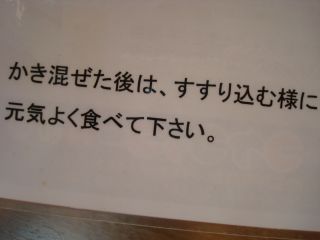 かき混ぜた後は、すすり込む様に
元気よく食べて下さい。